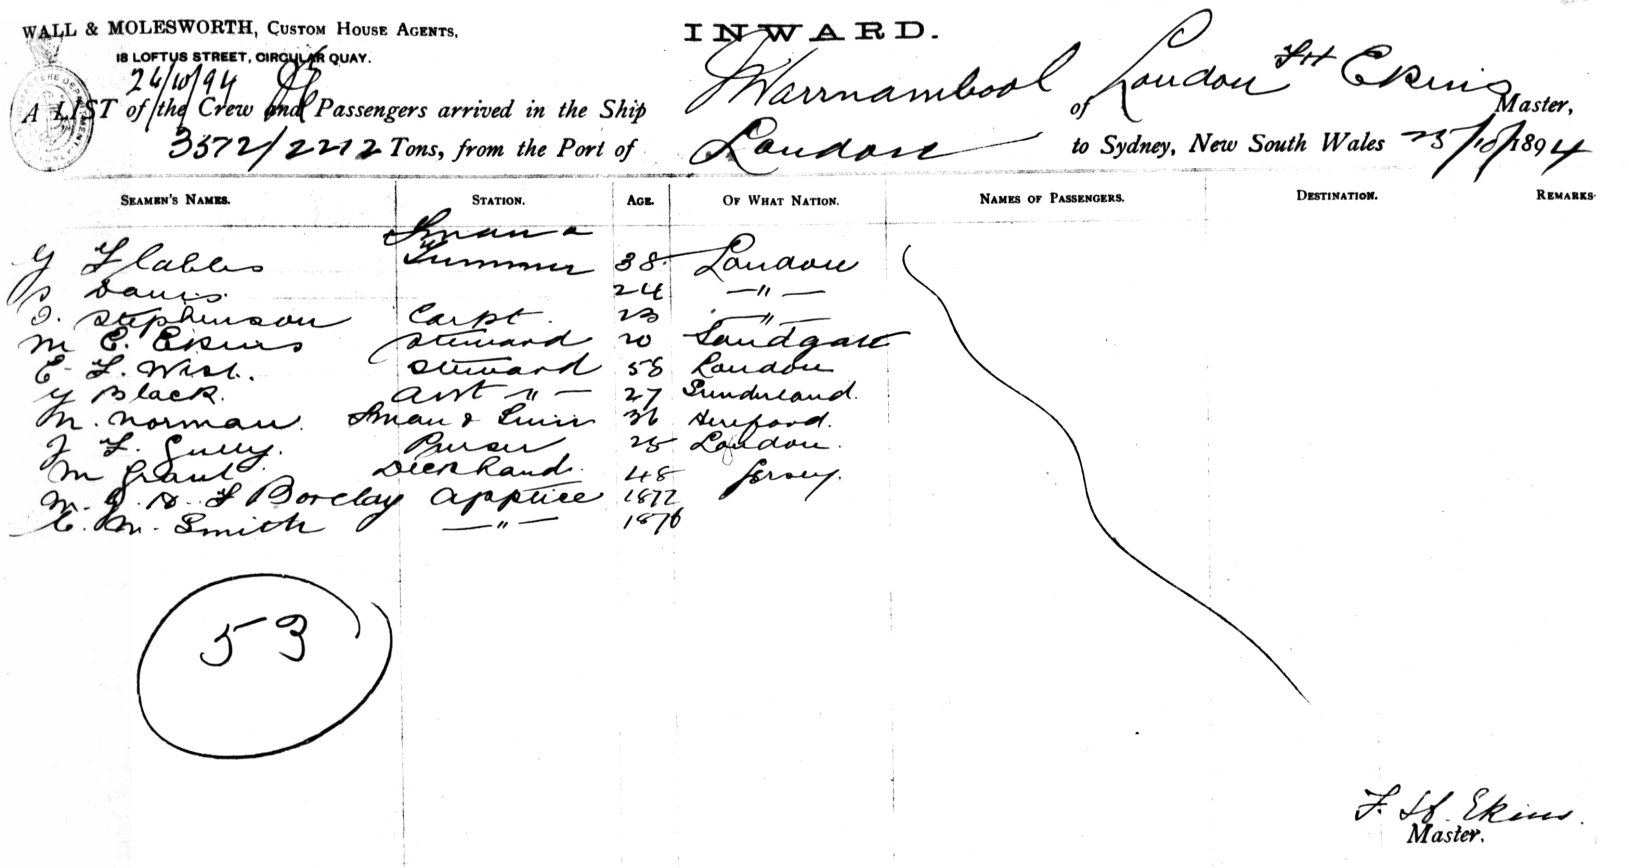 WALL & MOLESWORTH, CUSTOM HOUSE AGENTS,
18 LOFTUS STREET, CIRCULAR QUAY.
INWARD.
24/10/94
A LIST of the Crew and Passengers arrived in the Ship Warrnambool of London F H Ekins Master,
3572/2212 Tons, from the Port of London to Sydney, New South Wales 23/10/1894
SEAMEN'S NAMES. STATION. AGE. OF WHAT NATION. NAMES OF PASSENGERS. DESTINATION. REMARKS.
Sman &
Trimmer 38 London
Davis. 24 — " —
Stephenson Carpt. 23 — " —
M E. Ekins Steward 20 Sandgate
E. F. West. Steward 58 London
Black. Asst — " — 27 Sunderland.
M. Norman Sman & 36 Hereford.
F. Gully. Purser 25 London.
M Grant Deck hand. 48 Jersey.
M. J. H. F Barclay Apptice 1877
C. M. Smith — " — 1876
53
F. H. Ekins.
Master.